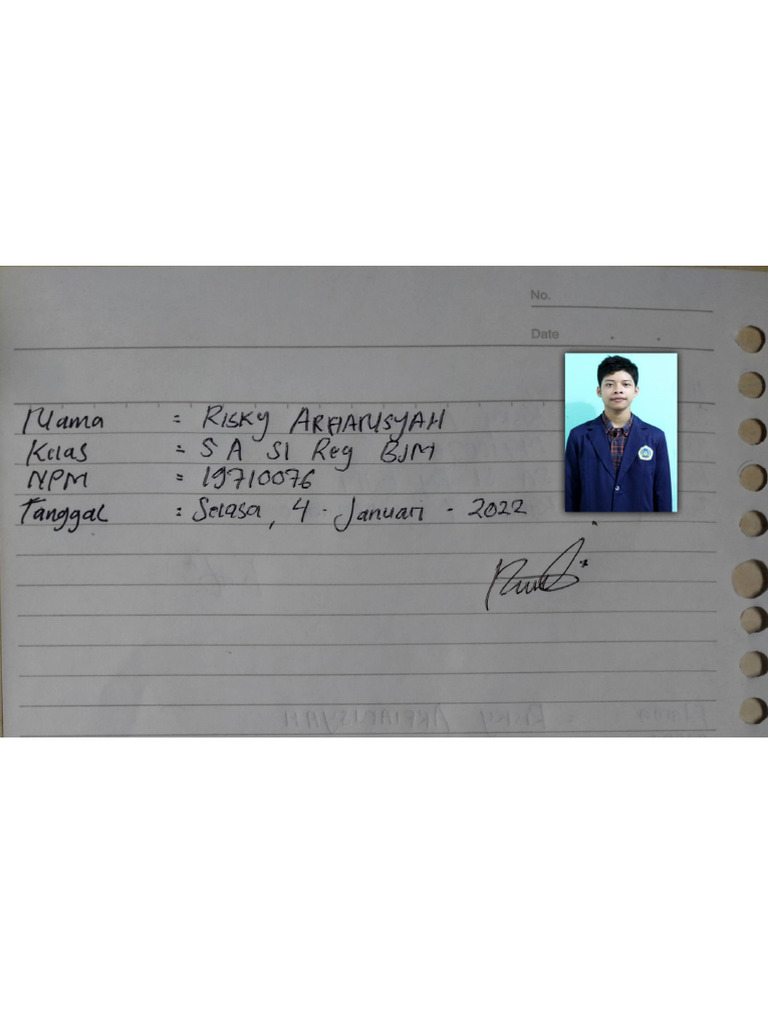 No.
Date
Nama : RISKY ARFIANSYAH
Kelas : 5 A SI Reg BJM
NPM : 19710076
Tanggal : Selasa, 4 - Januari - 2022